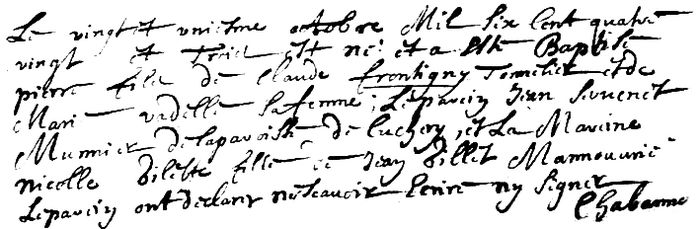 Le vingt et uniesme octobre Mil Six Cent quatre
vingt et Trois Est né et a Esté Baptisé
pierre fils de Claude frontigny Tonnelier et de
Marie vadelle Safemme, Leparein Jean
Munnier delaparoisse de Luchery, et La Mareine
nicolle Bilette fille de Jean Billet Mannouvrié
Leparein ont declaré nescavoir Ecrire ny Signer
Chabanne